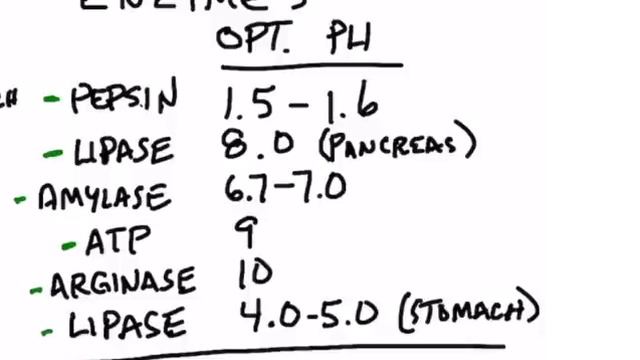 ENZYMES
OPT. PH
- PEPSIN 1.5 - 1.6
- LIPASE 8.0 (PANCREAS)
- AMYLASE 6.7-7.0
- ATP 9
- ARGINASE 10
- LIPASE 4.0-5.0 (STOMACH)